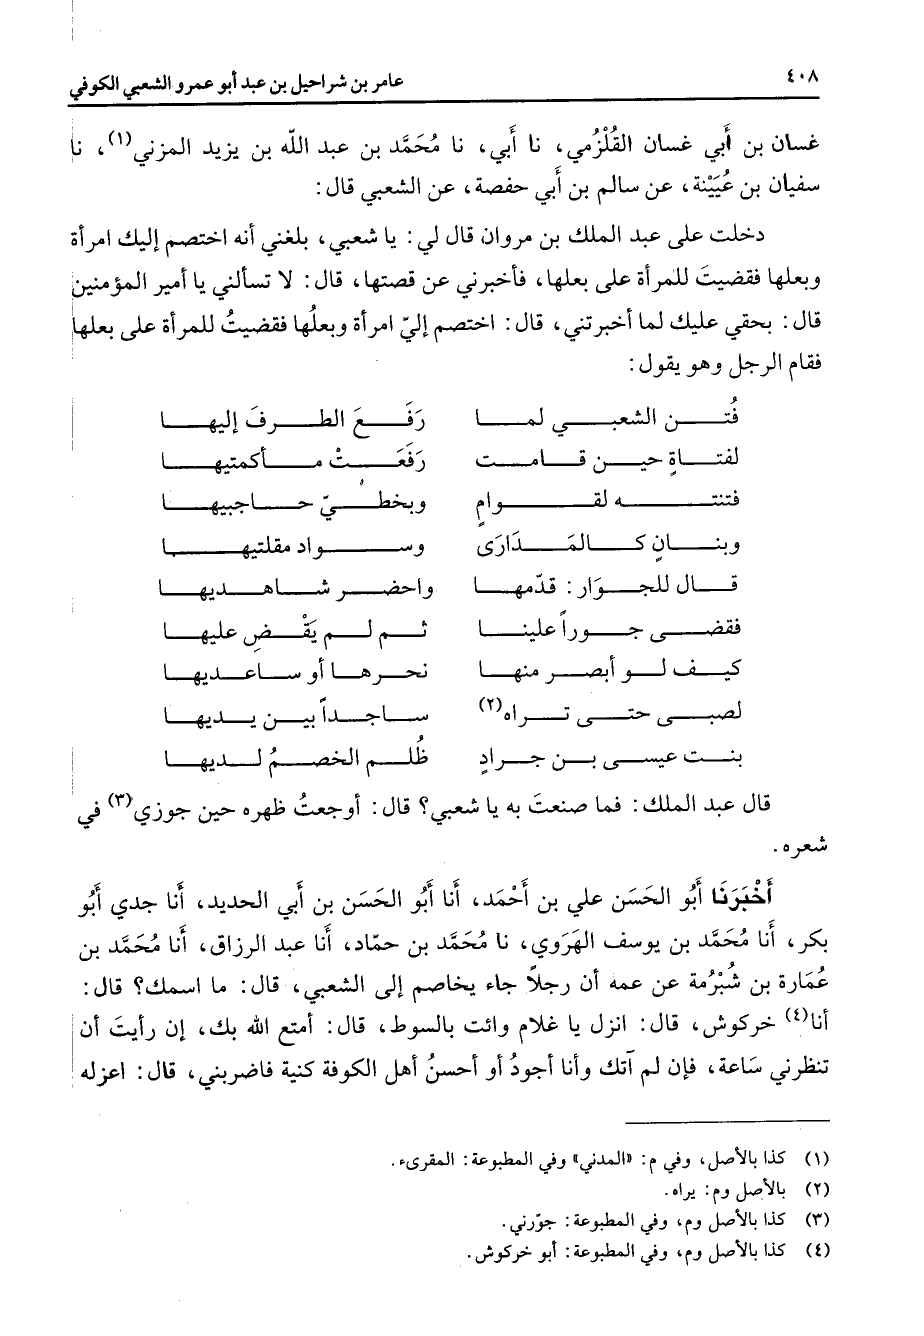 ٤٠٨ عامر بن شراحيل بن عبد أبو عمرو الشعبي الكوفي
غسان بن أَبي غسان القُلْزُمي، نا أَبي، نا مُحَمَّد بن عبد اللّه بن يزيد المزني(١)، نا
سفيان بن عُيَيْنة، عن سالم بن أَبي حفصة، عن الشعبي قال:
دخلت على عبد الملك بن مروان قال لي: يا شعبي، بلغني أنه اختصم إليك امرأة
وبعلها فقضيتَ للمرأة على بعلها، فأخبرني عن قصتها، قال: لا تسألني يا أمير المؤمنين
قال: بحقي عليك لما أخبرتني، قال: اختصم إليّ امرأة وبعلُها فقضيتُ للمرأة على بعلها
فقام الرجل وهو يقول:
فُتن الشعبي لما رَفَعَ الطرفَ إليها
لفتاةٍ حين قامت رَفَعَتْ مأكمتيها
فتنته لقوامٍ وبخطيّ حاجبيها
وبنانٍ كالمَدَارَى وسواد مقلتيها
قال للجوَار: قدّمها واحضر شاهديها
فقضى جوراً علينا ثم لم يَقْضِ عليها
كيف لو أبصر منها نحرها أو ساعديها
لصبى حتى تراه(٢) ساجداً بين يديها
بنت عيسى بن جرادٍ ظُلم الخصمُ لديها
قال عبد الملك: فما صنعتَ به يا شعبي؟ قال: أوجعتُ ظهره حين جوزي(٣) في
شعره.
أَخْبَرَنَا أَبُو الحَسَن علي بن أَحْمَد، أَنا أَبُو الحَسَن بن أَبي الحديد، أَنا جدي أَبُو
بكر، أَنا مُحَمَّد بن يوسف الهَرَوي، نا مُحَمَّد بن حمّاد، أَنا عبد الرزاق، أَنا مُحَمَّد بن
عُمَارة بن شُبْرُمة عن عمه أن رجلاً جاء يخاصم إلى الشعبي، قال: ما اسمك؟ قال:
أنا(٤) خركوش، قال: انزل يا غلام وائت بالسوط، قال: أمتع الله بك، إن رأيتَ أن
تنظرني سَاعة، فإن لم آتك وأنا أجودُ أو أحسنُ أهل الكوفة كنية فاضربني، قال: اعزله
(١) كذا بالأصل، وفي م: «المدني» وفي المطبوعة: المقرىء.
(٢) بالأصل وم: يراه.
(٣) كذا بالأصل وم، وفي المطبوعة: جوّرني.
(٤) كذا بالأصل وم، وفي المطبوعة: أبو خركوش.